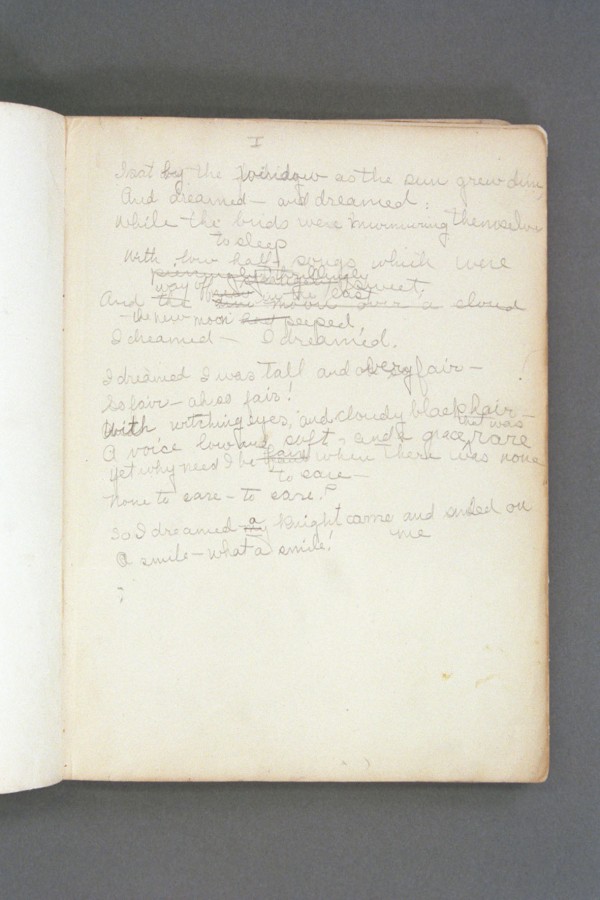 I
I sat by the window as the sun grew dim,
And dreamed — and dreamed;
While the birds were murmuring themselves
to sleep
With low half songs which were
sweet,
way off in the east
And the moon over a cloud
— the new moon had peeped,
I dreamed — I dreamed.
I dreamed I was tall and very fair —
So fair — ah so fair!
With witching eyes, and cloudy black hair —
that was
A voice low and soft, and a grace rare
Yet why need I be fair when there was none
to care —
None to care — to care?
So I dreamed a knight came and smiled on
me
A smile — what a smile!